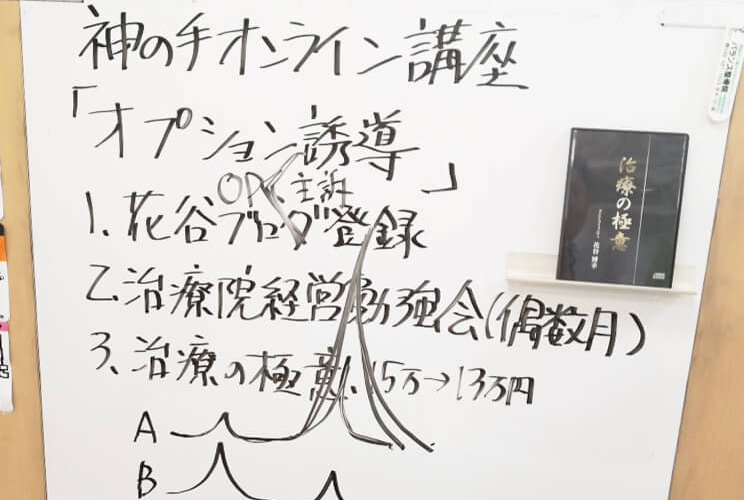 神の手オンライン講座
「オプション誘導」
OP 主訴
1. 花谷ブログ登録
2. 治療院経営勉強会(偶数月)
3. 治療の極意 15万→13万円
A
B
治療の極意